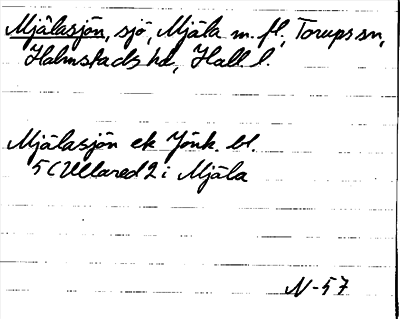 Mjälasjön, sjö, Mjäla m. fl., Torups sn,
Halmstads hd, Hall. l.
Mjälasjön ek Jönk. bl.
5C Ullared 2 i Mjäla
N-57